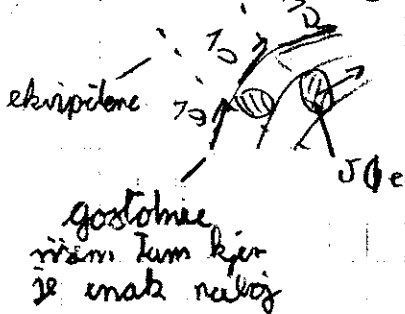 D
D
ekvipotenc
D
J e
gostobnic
nisem tam kjer
je enak naboj